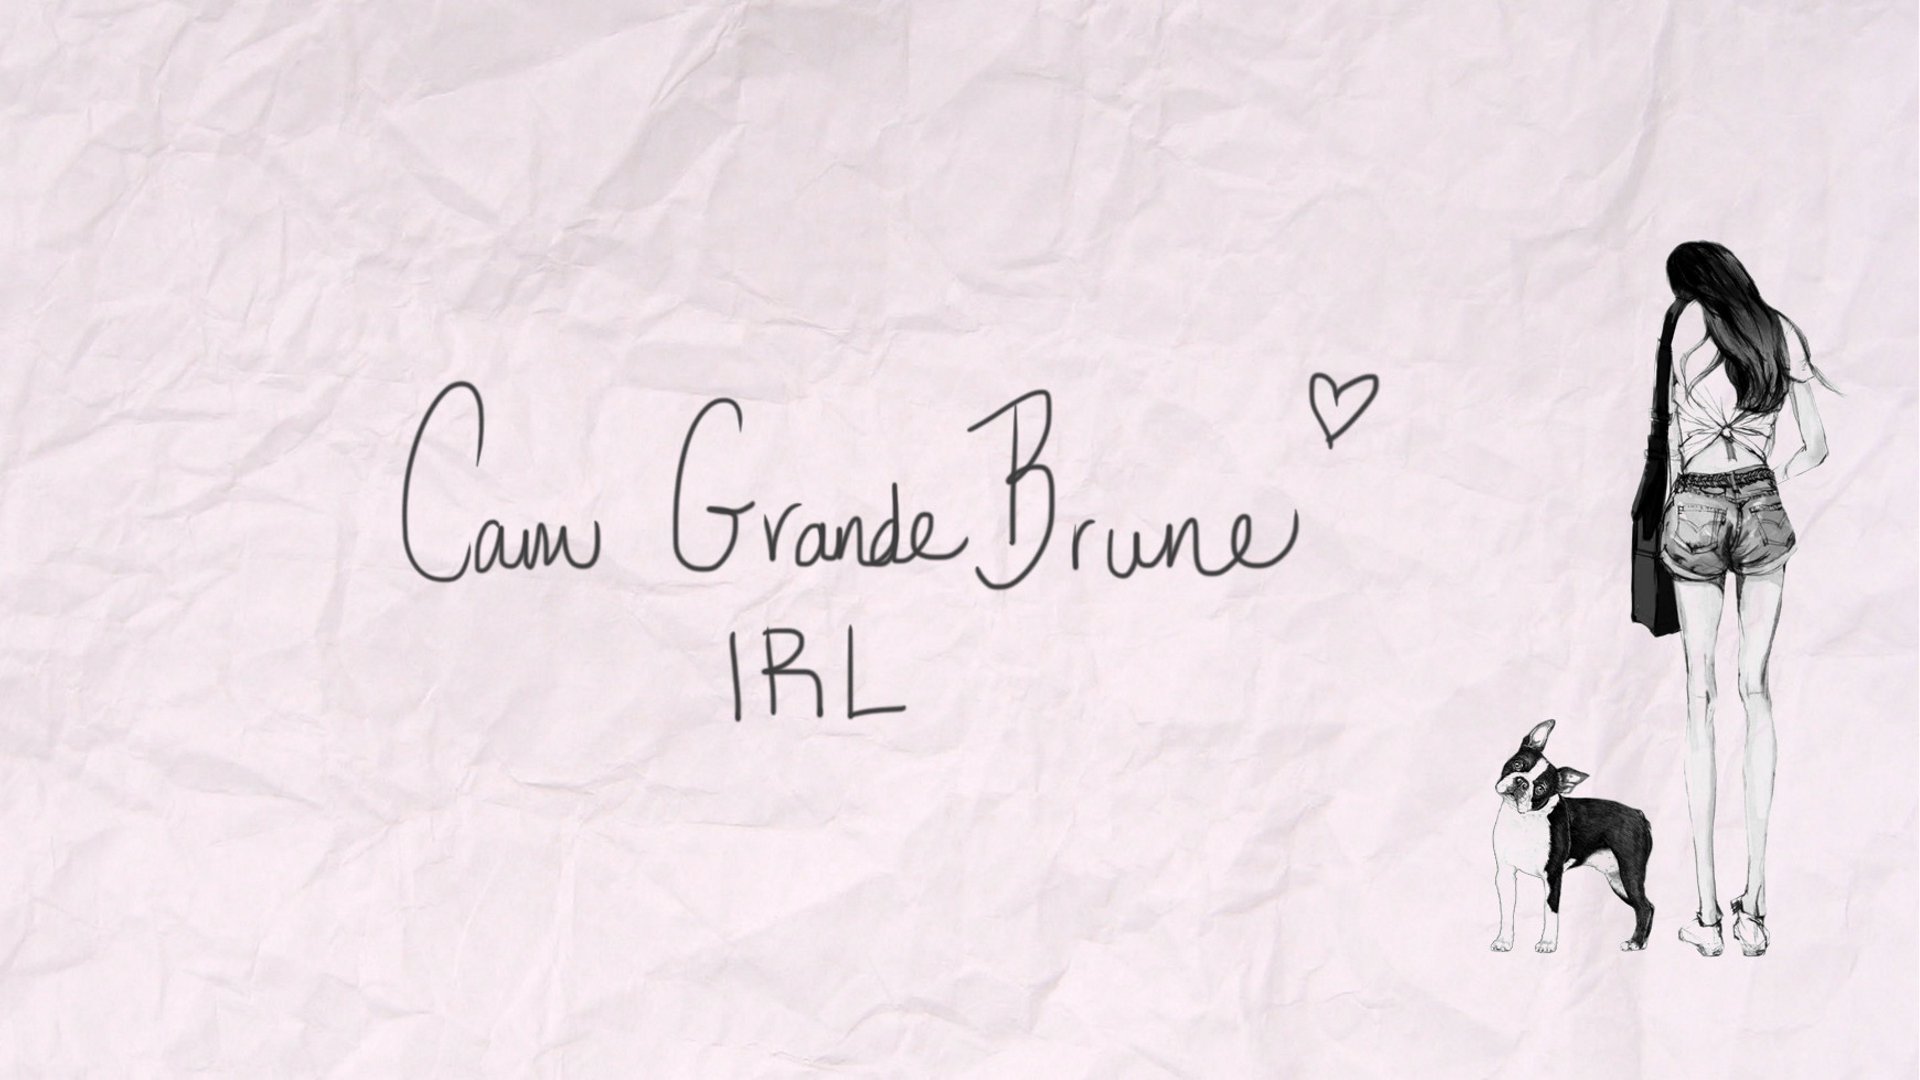 Cam Grande Brune ♡
IRL